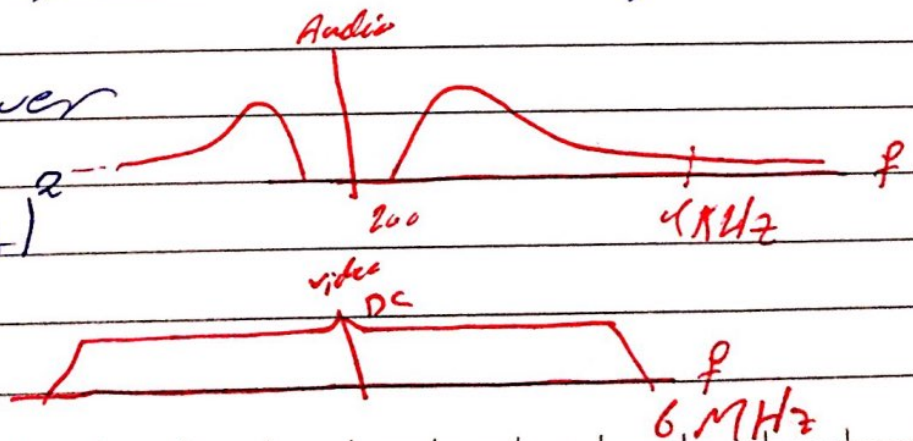 Audio
ver
2
f
200
4KHz
video
DC
f
6 MHz